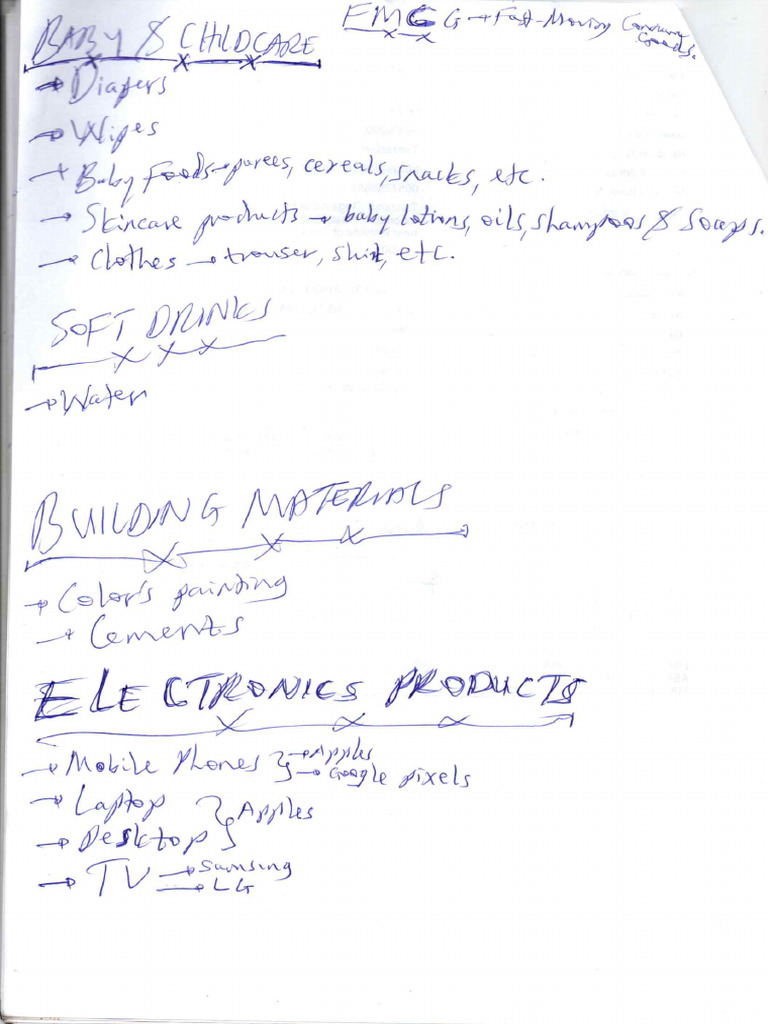 FMCG → Fast-Moving Consumer
Goods.
BABY & CHILDCARE
→ Diapers
→ Wipes
→ Baby Foods → purees, cereals, snacks, etc.
→ Skincare products → baby lotions, oils, shampoos & Soaps.
→ Clothes → trouser, shirt, etc.
SOFT DRINKS
→ Water
BUILDING MATERIALS
→ Color's painting
→ Cements
ELECTRONICS PRODUCTS
→ Mobile Phones } → Apples
→ Google pixels
→ Laptop } Apples
→ Desktop
→ TV → Samsing
→ LG